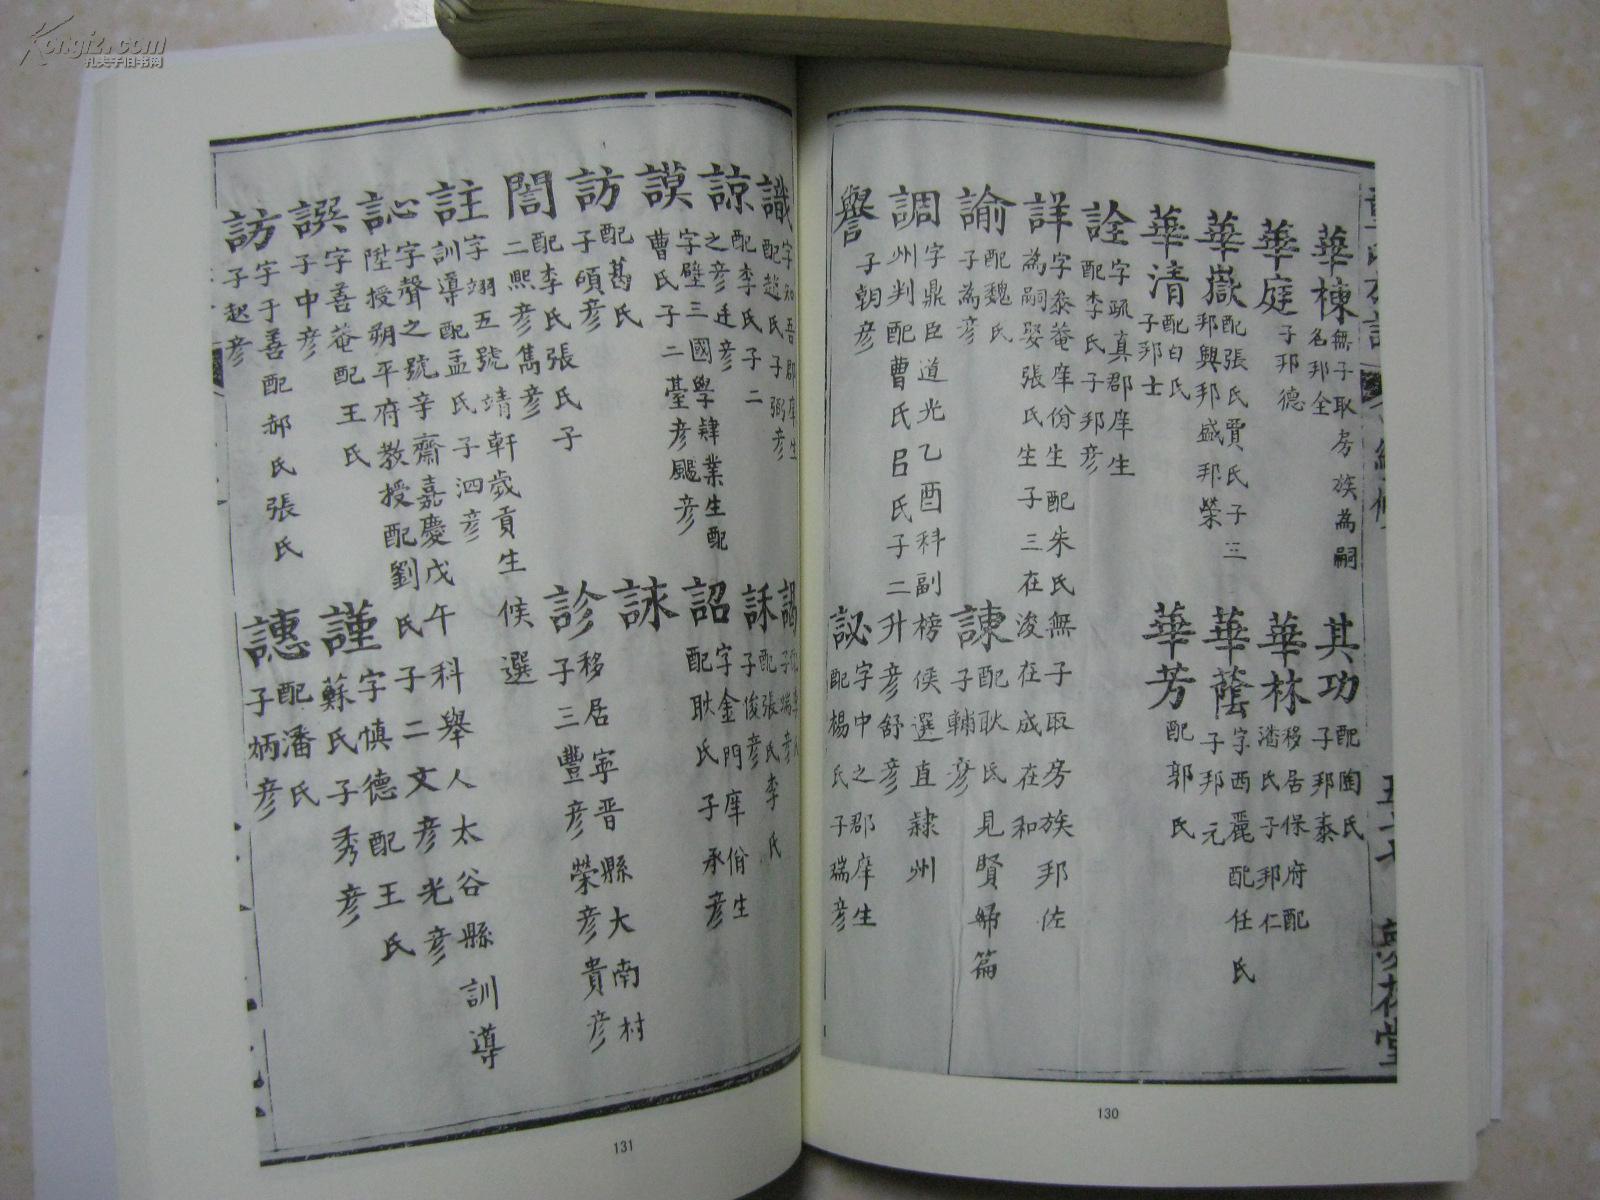 Kongfz.com
孔夫子旧书网
華棟
無子取房族為嗣
名邦全
其功
配陶氏
子邦泰
華庭
子邦德
華林
移居保府配
潘氏子邦仁
華嶽
配張氏賈氏子三
邦興邦盛邦榮
華蔭
字西麗配任氏
子邦元
華清
配白氏
子邦士
華芳
配郭氏
詮
字疏真郡庠生
配李氏子邦彦
詳
字黍菴庠份生配朱氏無子取房族邦佐
為嗣娶張氏生子三在浚在成在和
諭
配魏氏
子為彦
諫
配耿氏見賢婦篇
子輔彦
調
字鼎臣道光乙酉科副榜候選直隷州
州判配曹氏呂氏子二升彦舒彦
譽
子朝彦
諡
字中之郡庠生
配楊氏子瑞彦
130
識
字知吾郡庠生
配趙氏子弼彦
諒
配李氏子二
之彦廷彦
訸
配張氏李氏
子俊彦
謨
字壁三國學肄業生配
曹氏子二臺彦颺彦
詔
字金門庠佾生
配耿氏子承彦
訪
配葛氏
子碩彦
詠
誾
配李氏張氏子
二熙彦雋彦
診
移居寧晋縣大南村
子三豐彦榮彦貴彦
註
字翊五號靖軒歲貢生候選
訓導配孟氏子泗彦
訫
字聲之號辛齋嘉慶戊午科舉人太谷縣訓導
陞授朔平府教授配劉氏子二文彦光彦
謹
字慎德配王氏
蘇氏子秀彦
譔
字善菴配王氏
子中彦
譓
配潘氏
子炳彦
訪
字于善配郝氏張氏
子起彦
131